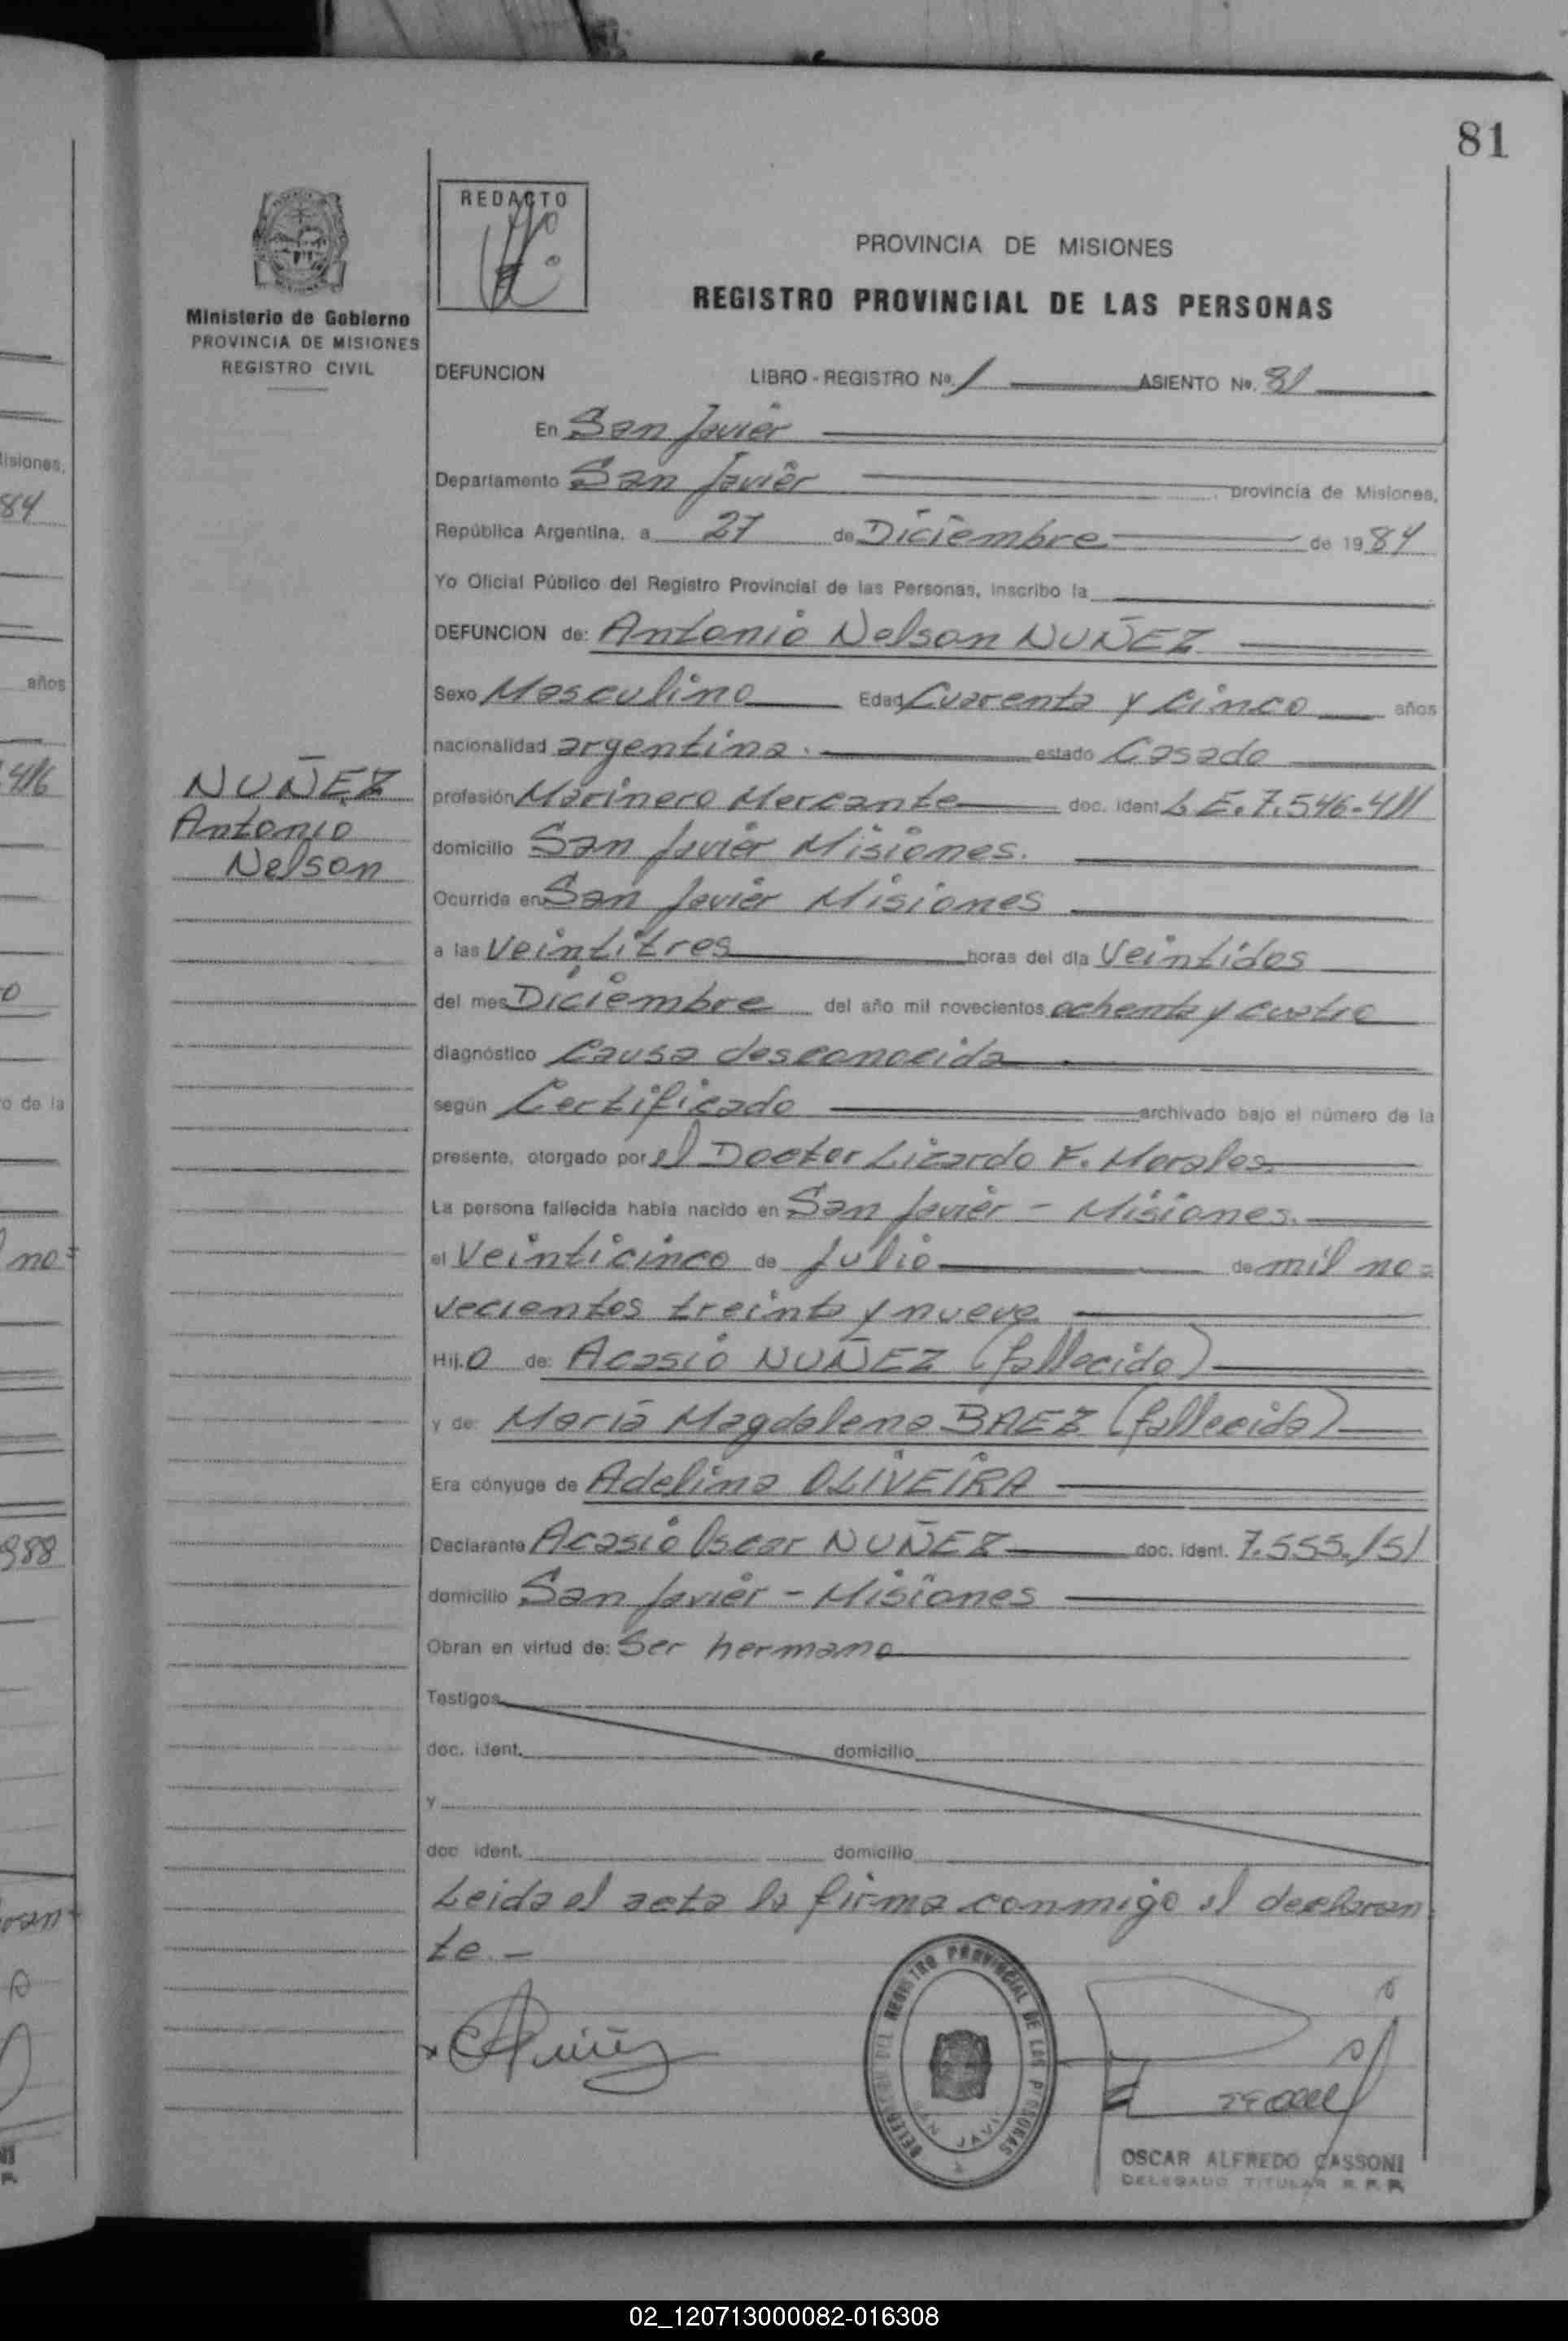 81
REDACTO
PROVINCIA DE MISIONES
REGISTRO PROVINCIAL DE LAS PERSONAS
Ministerio de Gobierno
PROVINCIA DE MISIONES
REGISTRO CIVIL
DEFUNCION LIBRO - REGISTRO Nº. 1 ASIENTO Nº. 81
En San Javier
Departamento San Javier provincia de Misiones,
República Argentina, a 27 de Diciembre de 1984
Yo Oficial Público del Registro Provincial de las Personas, inscribo la
DEFUNCION de: Antonio Nelson NUÑEZ
Sexo Masculino Edad Cuarenta y Cinco años
nacionalidad argentina. estado Casado
NUÑEZ
Antonio
Nelson
profesión Marinero Mercante doc. ident. L.E. 7.546.411
domicilio San Javier Misiones.
Ocurrida en San Javier Misiones
a las Veintitres horas del día Veintidos
del mes Diciembre del año mil novecientos ochenta y cuatro
diagnóstico Causa desconocida
según Certificado archivado bajo el número de la
presente, otorgado por el Doctor Lizardo F. Morales.
La persona fallecida había nacido en San Javier - Misiones.
el Veinticinco de Julio de mil no=
vecientos treinta y nueve
Hij.o de: Acasio NUÑEZ (fallecido)
y de: María Magdalena BAEZ (fallecida)
Era cónyuge de Adelina OLIVEIRA
Declarante Acasio Oscar NUÑEZ doc. ident. 7.555.151
domicilio San Javier - Misiones
Obran en virtud de: Ser hermano
Testigos
doc. ident. domicilio
y
doc ident. domicilio
Leida el acta la firma conmigo el declaran
te.-
DELEGACION DEL REGISTRO PROVINCIAL DE LAS PERSONAS
SAN JAVI
OSCAR ALFREDO CASSONI
DELEGADO TITULAR R.P.P.
Misiones,
84
años
416
0
o de la
no=
988
02_120713000082-016308